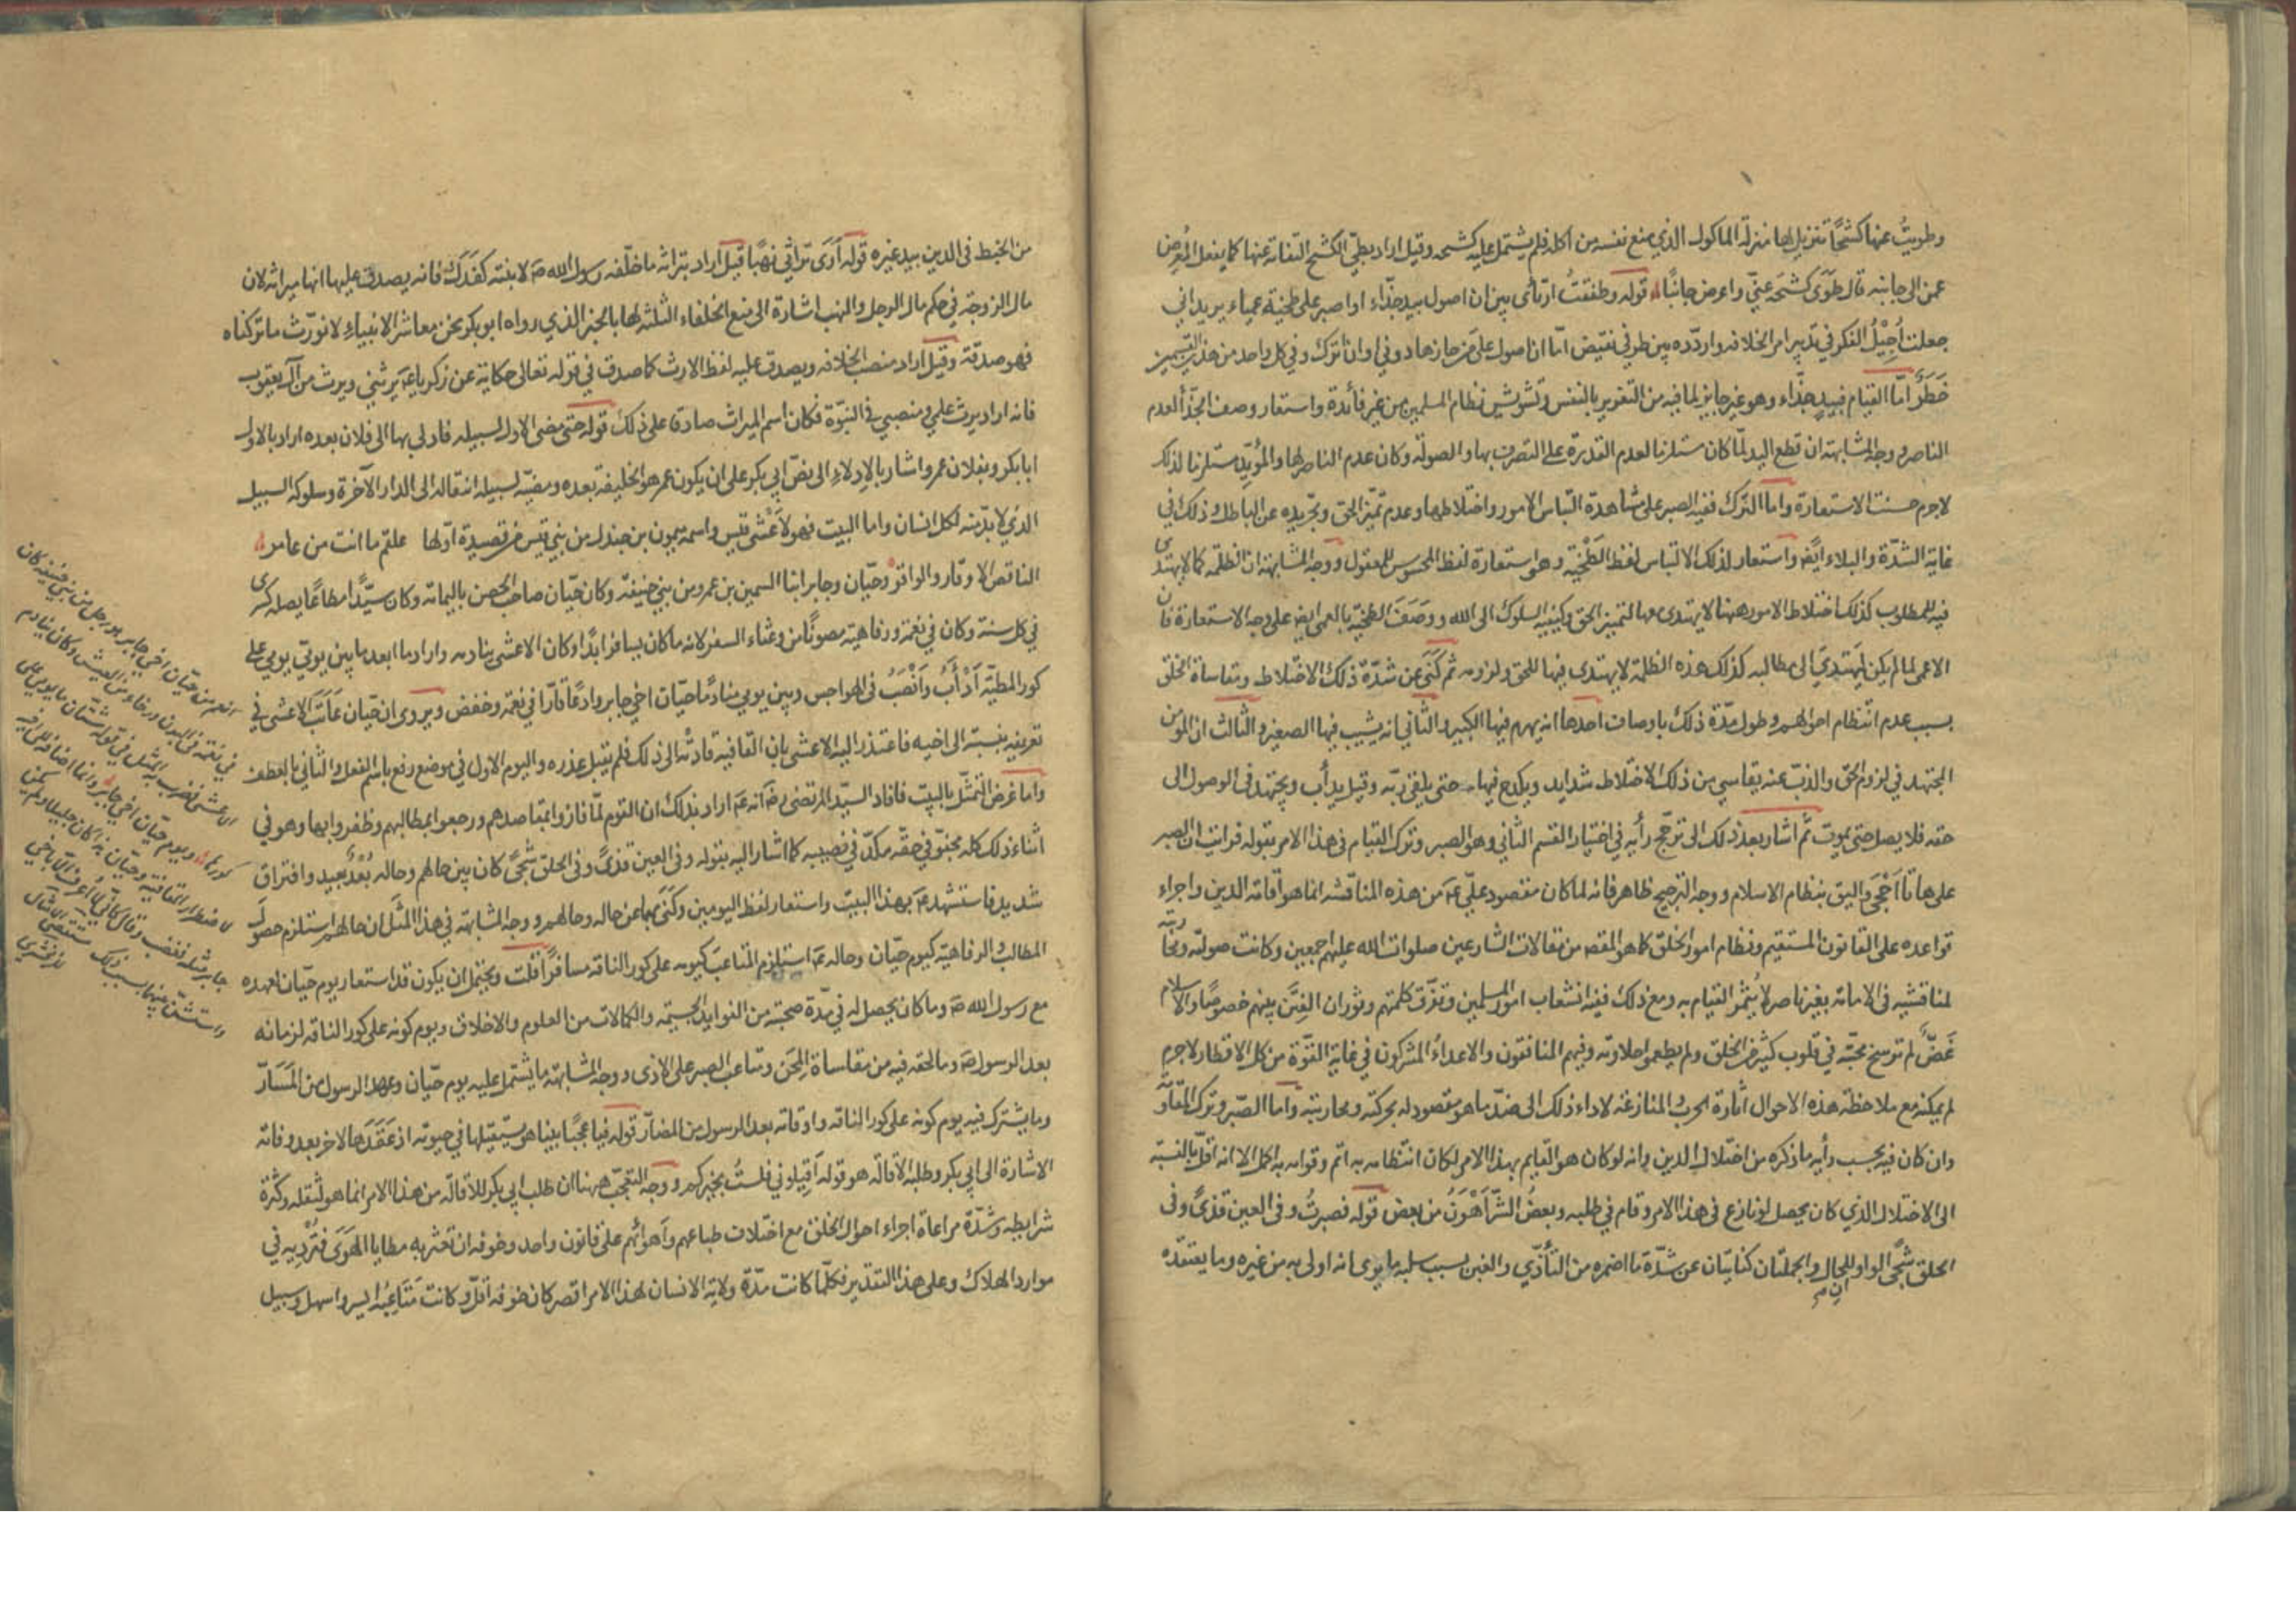 وطويتُ عنها كشحًا تنزيل لها منزلة الماكول الذي منع نفسه من اكله فلم يشتمل عليه كشحه وقيل اراد بطيّ الكشح التفاته عنها كما يفعل المُعرِض
عمن الى جانبه قال طَوَى كشحَه عنّي واعرض جانبًا قوله وطفقتُ ارتأى بين ان اصول بيد جذّاء او اصبر على طخية عمياء يريد اني
جعلت اُجِيْلُ الفكر في تدبير امر الخلافه واردّده بين طرفي نقيض امّا ان اصول على من حازها دوني او ان اترك وفي كل واحد من هذين القسمين
خَطَرٌ امّا القيام فبيدٍ جذّاء وهو غير جايز لما فيه من التغرير بالنفس وتشويش نظام المسلمين من غير فائدة واستعار وصف الجذّاء لعدم
الناصر ووجه المشابهة ان قطع اليد لمّا كان مستلزما لعدم القدرة على التصرف بها والصولة وكان عدم الناصر لها والمؤيّد مستلزما لذلك
لاجرم حسنت الاستعارة واما الترك ففيه الصبر على مشاهدة التباس الامور واختلاطها وعدم تميّز الحق وتجريده عن الباطل وذلك في
غاية الشدّة والبلاء ايضًا واستعار لذلك الالتباس لفظ الطَخْيَة وهو استعارة لفظ المحسوس للمعقول ووجه المشابهة ان الظلمه كما لا يهتدى
فيها للمطلوب كذلك اختلاط الامور ههنا لا يهتدى معها لتمييز الحق وكيفيه السلوك الى الله ووصَفَ الطخيه بالعمى ايضا على وجه الاستعارة فان
الاعمى لما لم يكن ليهتدي الى مطالبه كذلك هذه الظلمة لا يهتدى فيها للحق ولزومه ثم كَنَّى عن شدّة ذلك الاختلاط ومقاساة الخلق
بسبب عدم انتظام احوالهم وطول مدّة ذلك باوصاف احدها انه يهرم فيها الكبير والثاني انه يشيب فيها الصغير والثالث ان المؤمن
المجتهد في لزوم الحق والذبّ عنه يقاسي من ذلك الاختلاط شدايد ويكدح فيها حتى يلقى ربّه وقيل يدأب ويجتهد في الوصول الى
حقه فلا يصل حتى يموت ثم اشار بعد ذلك الى ترجّح رأيه في اختيار القسم الثاني وهو الصبر وترك القيام في هذا الامر بقوله فرايت ان الصبر
على هاتا اَحْجَى واليق بنظام الاسلام ووجه الترجيح ظاهر فانه لما كان مقصود عليّ ع من هذه المناقشه انما هو اقامة الدين واجراء
قواعده على القانون المستقيم ونظام امور الخلق كما هو المقصود من مقالات الشارعين صلوات الله عليهم اجمعين وكانت صولته
لمناقشيه في الامامة بغير ناصر لا يُثمر القيام به ومع ذلك ففيه انشعاب امور المسلمين وتفرّق كلمتهم وثوران الفِتَن بينهم خصوصًا والاسلام
غَضٌّ لم ترسخ محبّته في قلوب كثير من الخلق ولم يطعموا حلاوته وفيهم المنافقون والاعداءُ المشركون في غاية القوّة من كل الاقطار لاجرم
لم يمكنه مع ملاحظة هذه الاحوال اثارة الحرب والمنازعة لاداء ذلك الى ضدّ ما هو مقصود له بحركته ومحاربته واما الصّبر وترك المقاومه
وان كان فيه بحسب رأيه ما ذكره من اختلال الدين وانه لو كان هو القايم بهذا الامر لكان انتظامه به اتم وقوامه به اكمل الا انه اقلّ بالنسبة
الى الاختلال الذي كان يحصل لو نازع في هذا الامر وقام في طلبه وبعضُ الشَّرّ اَهْوَنُ من بعض قوله فصبرتُ وفي العين قذىً وفي
الحلق شجًى الواو للحال والجملتان كنايتان عن شدّة ما اضمره من التأذّي والغبن بسبب سلبه ما يرى انه اولى به من غيره وما يعتقده
من الخبط في الدين بيد غيره قوله اَرَى تراثي نهبًا قيل اراد بتراثه ما خلّفه رسول الله ص لابنته كفَدَك فانه يصدق عليها انها ميراثه لان
مال الزوجة في حكم مال الرجل والنهب اشارة الى منع الخلفاء الثلثة لها بالخبر الذي رواه ابو بكر نحن معاشر الانبياءِ لا نورّث ما تركناه
فهو صدقة وقيل اراد منصب الخلافه ويصدق عليه لفظ الارث كما صدق في قوله تعالى حكاية عن زكريا ع يَرِثُني ويرث من آل يعقوب
فانه اراد يرث علمي ومنصبي في النبوّة فكان اسم الميراث صادقا على ذلك قوله حتى مضى الاول لسبيله فادلى بها الى فلان بعده اراد بالاول
ابا بكر وبفلان عمر واشار بالاِدلاءِ الى نصّ ابي بكر على ان يكون عمر هو الخليفه بعده ومضيّه لسبيله انتقاله الى الدار الآخرة وسلوكه السبيل
الذي لا بدّ منه لكل انسان واما البيت فهو لاَعْشى قيس واسمه ميمون بن جندل من بني قيس من قصيدة اوّلها علقم ما انت من عامر
الناقض الاوتار والواتر وحيّان وجابر ابنا السمين بن عمرو من بني حنيفه وكان حيّان صاحب الحصن باليمامة وكان سيّدًا مطاعًا يصله كسرى
في كل سنة وكان في نعمة ورفاهية مصونًا من وعثاء السفر لانه ما كان يسافر ابدًا وكان الاعشى ينادمه واراد ما ابعد ما بين يومَيّ يومي على
كور المطيّة اَدْأَبُ واَنْصَبُ في الهواجر وبين يومي منادمًا حيّان اخي جابر وادعًا قارّا في نعمة وخفض ويروى ان حيّان عَاتَبَ الاعشى في
تعريفه بنسبته الى اخيه فاعتذر اليه الاعشى بان القافية قادتْه الى ذلك فلم يقبل عذره واليوم الاول في موضع رفع باسم الفعل والثاني بالعطف
واما غرض التمثّل بالبيت فافاد السيّد المرتضى رض انه ع اراد بذلك ان القوم لمّا فازوا بمقاصدهم ورجعوا بمطالبهم وظفروا بها وهو في
اثناء ذلك كله مجفوّ في حقّه مكدّ في نصيبه كما اشار اليه بقوله وفي العين قذىً وفي الحلق شجًى كان بين حالهم وحاله بُعْدٌ بعيد وافتراق
شديد فاستشهد ع بهذا البيت واستعار لفظ اليومين وكَنَى بهما عن حاله وحالهم ووجه المشابهة في هذا المثل ان حالهم استلزم حصول
المطالب والرفاهية كيوم حيّان وحاله ع استلزم المتاعب كيومه على كور الناقه مسافرًا قلت ويحتمل ان يكون قد استعار يوم حيّان لعهده
مع رسول الله ص وما كان يحصل له في مدّة صحبته من الفوايد الجسيمه والكمالات من العلوم والاخلاق ويوم كونه على كور الناقه لزمانه
بعد الرسول ص وما لحقه فيه من مقاساة المِحَن ومتاعب الصبر على الاذى ووجه المشابهة ما يشتمل عليه يوم حيّان وعهد الرسول من المَسَارّ
وما يشترك فيه يوم كونه على كور الناقه واوقاته بعد الرسول من المضارّ قوله فيا عجبًا بينا هو يستقيلها في حيوته اذ عَقَدَها لاخر بعد وفاته
الاشارة الى ابي بكر وطلبه الاقالة هو قوله اَقِيلوني فلستُ بخيركم ووجه التعجّب ههنا ان طلب ابي بكر للاقالة من هذا الامر انما هو لثقله وكثرة
شرايطه وشدّة مراعاة اجراء احوال الخلق مع اختلاف طباعهم واَهوائهم على قانون واحد وخوفه ان تعثر به مطايا الهَوَى فتُرْدِيه في
موارد الهلاك وعلى هذا التقدير فكلّما كانت مدّة ولاية الانسان لهذا الامر اقصر كان خوفه اقلّ وكانت مَتَاعِبُه ايسر واسهل وسبيل
حيّان اخي جابر هو رجل من بني حنيفه كان
في نعمة في البدن ورخاء من العيش وكان ينادم
الاعشى فضرب به المثل في قوله شتّان ما يومي على
كورها ويوم حيّان اخي جابر وانما اضافه الى اخيه
لاضطرار القافية وحيّان
جابر مثله فغضب وقال كأنّي لا أُعرف الا باخي